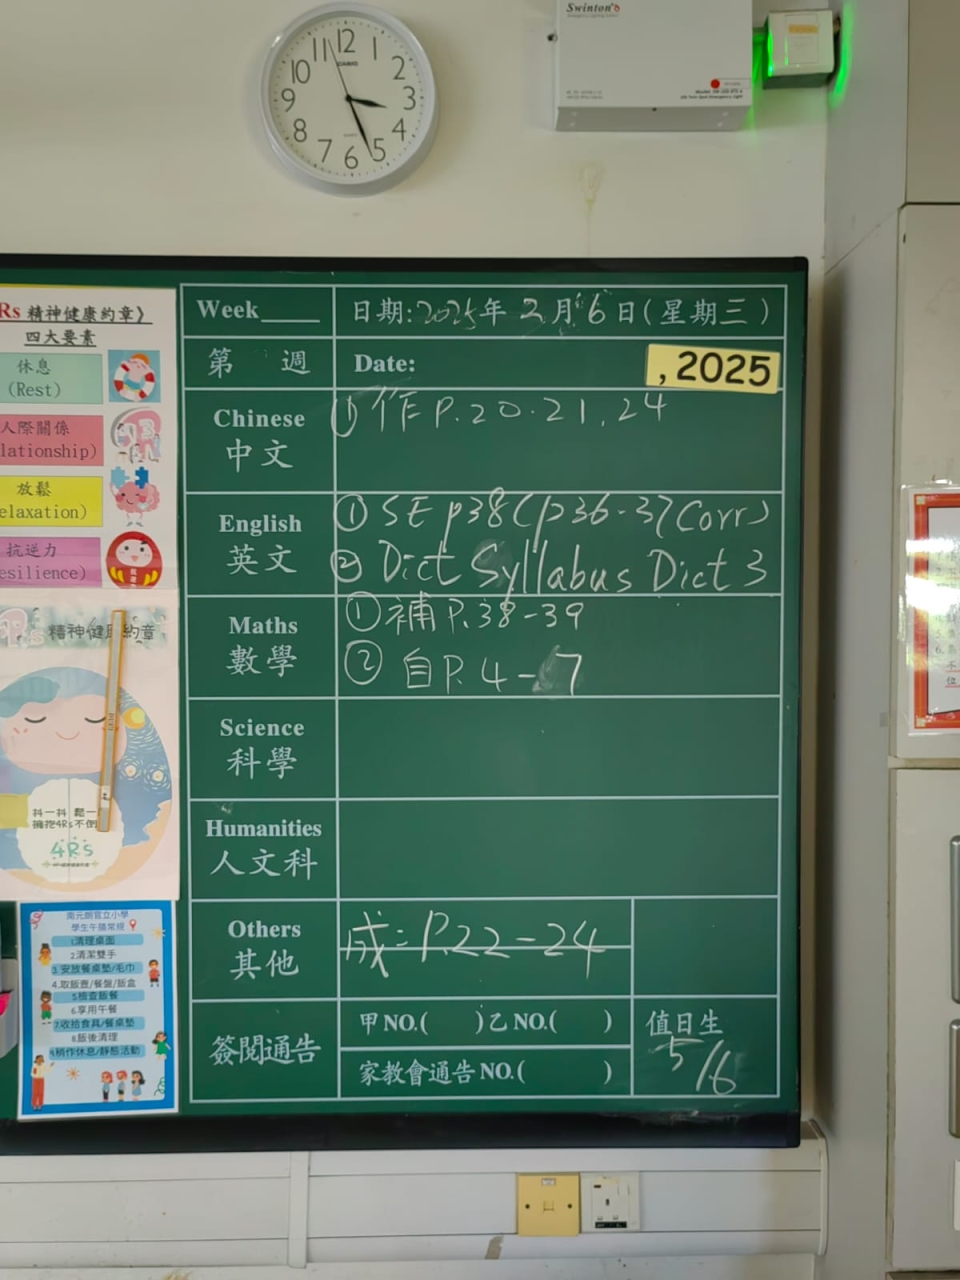 12 1 2 3 4 5 6 7 8 9 10 11
CASIO
Swinton
Rs 精神健康約章》
四大要素
休息
(Rest)
人際關係
lationship)
放鬆
elaxation)
抗逆力
esilience)
精神健康約章
抖一抖 鬆一
擁抱4Rs不倒
4Rs
南元朗官立小學
學生午膳常規
1.清理桌面
2.清潔雙手
3.安放餐桌墊/毛巾
4.取飯壺/餐盤/飯盒
5.檢查飯餐
6.享用午餐
7.收拾食具/餐桌墊
8.飯後清理
9.稍作休息/靜態活動
Week____ 日期:2025年2月6日(星期三)
第 週 Date: , 2025
Chinese
中文
① 作 P.20.21.24
English
英文
① SE p38 (p36-37 Corr)
② Dict Syllabus Dict 3
Maths
數學
① 補 P.38-39
② 自 P.4-7
Science
科學
Humanities
人文科
Others
其他
成: P.22-24
簽閱通告
甲NO.( )乙NO.( )
家教會通告NO.( )
值日生
5/6